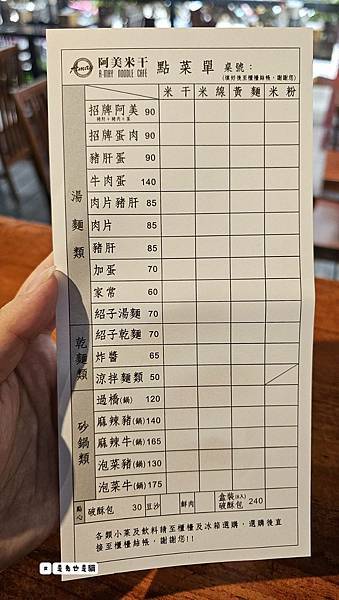 Amay 阿美米干 點菜單 桌號：
A-MAY NOODLE CAFÉ (填好後至櫃檯結帳,謝謝您)
米干 米線 黃麵 米粉
湯麵類
招牌阿美 90
豬肝+豬肉+蛋
招牌蛋肉 90
豬肝蛋 90
牛肉蛋 140
肉片豬肝 85
肉片 85
豬肝 85
加蛋 70
家常 60
紹子湯麵 70
乾麵類
紹子乾麵 70
炸醬 65
涼拌麵類 50
砂鍋類
過橋(鍋) 120
麻辣豬(鍋)140
麻辣牛(鍋)165
泡菜豬(鍋)130
泡菜牛(鍋)175
點心 破酥包 30 豆沙 鮮肉 盒裝(8入)破酥包 240
各類小菜及飲料請至櫃檯及冰箱選購，選購後直
接至櫃檯結帳，謝謝您!!
是魚也是貓